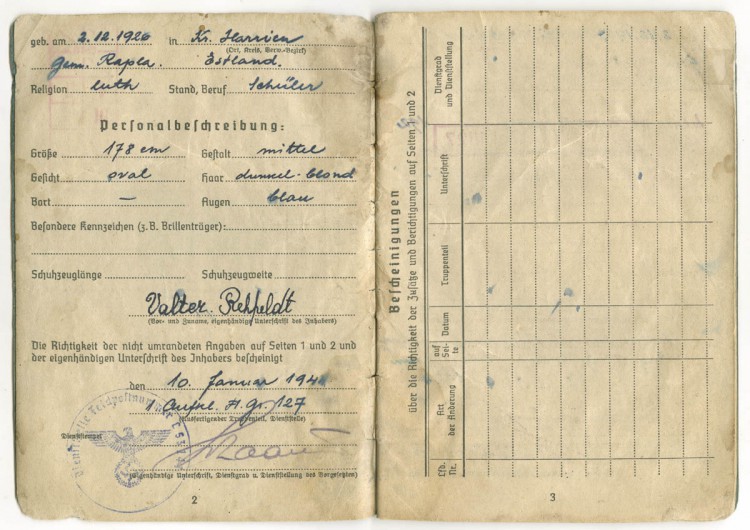 geb. am 2.12.1926 in Kr. Harrien
(Ort, Kreis, Verw.-Bezirk)
Gem. Rapla. Estland.
Religion luth Stand, Beruf Schüler
Personalbeschreibung:
Größe 178 cm Gestalt mittel
Gesicht oval Haar dunkel-blond
Bart – Augen blau
Besondere Kennzeichen (z.B. Brillenträger):
Schuhzeuglänge Schuhzeugweite
Valter Rehfeldt
(Vor- und Zuname, eigenhändige Unterschrift des Inhabers)
Die Richtigkeit der nicht umrandeten Angaben auf Seiten 1 und 2 und
der eigenhändigen Unterschrift des Inhabers bescheinigt
den 10. Januar 194
1. Aufkl. A. Gr. 127
(Ausfertigender Truppenteil, Dienststelle)
Dienststempel
(Eigenhändige Unterschrift, Dienstgrad u. Dienststellung des Vorgesetzten)
2
Bescheinigungen
über die Richtigkeit der Zusätze und Berichtigungen auf Seiten 1 und 2
Lfd. Nr.
Art der Änderung
auf Sei-
te
Datum
Truppenteil
Unterschrift
Dienstgrad
und Dienststellung
3